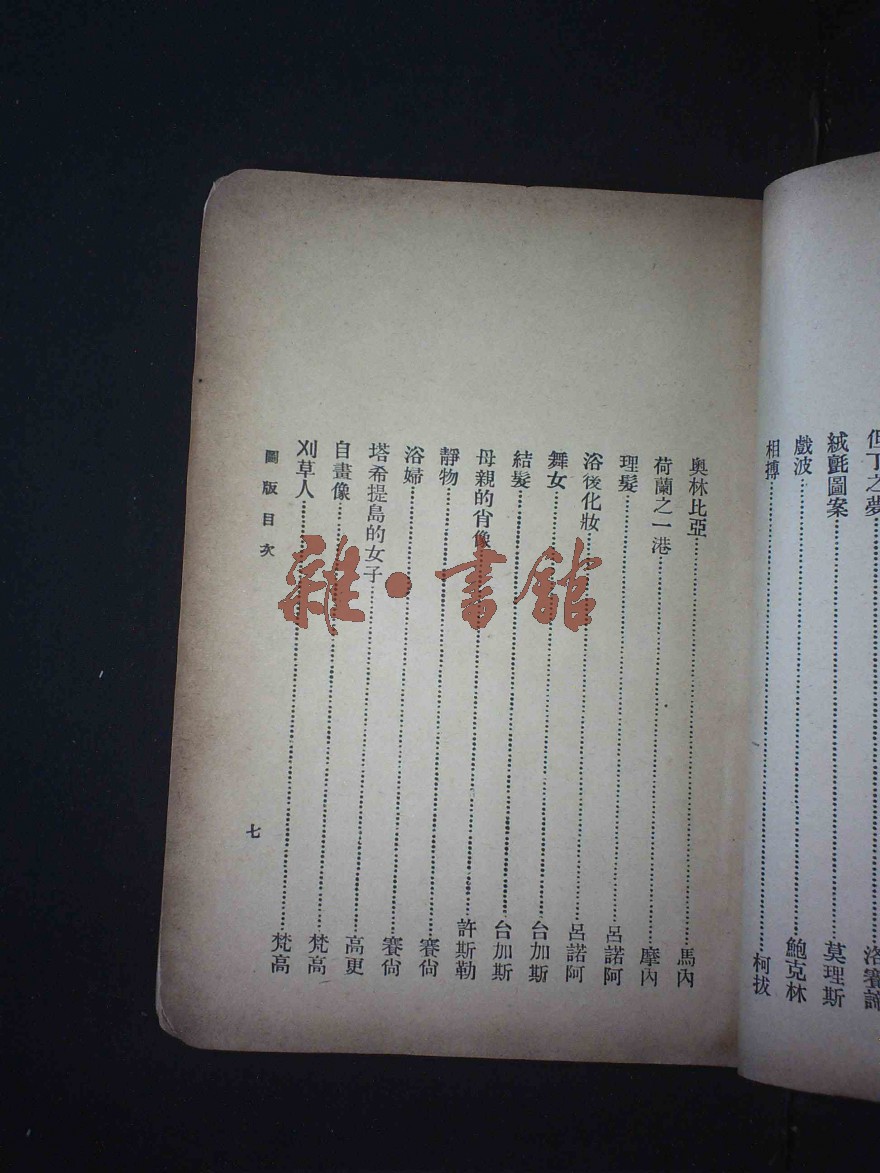 但丁之夢……洛賽諦
絨氈圖案……莫理斯
戲波……鮑克林
相搏……柯拔
奧林比亞……馬內
荷蘭之一港……摩內
理髮……呂諾阿
浴後化妝……呂諾阿
舞女……台加斯
結髮……台加斯
母親的肖像……許斯勒
靜物……賽尙
浴婦……賽尙
塔希提島的女子……高更
自畫像……梵高
刈草人……梵高
圖版目次
七
雜·書館